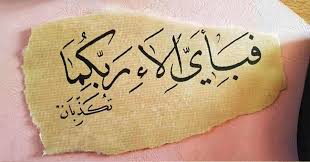 فَبِأَيِّ اٰلَاءِ رَبِّكُمَا
تُكَذِّبَان